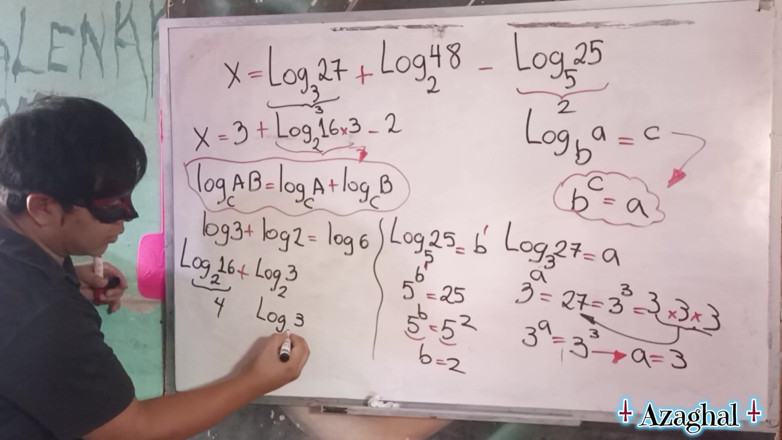 x = Log₃27 + Log₂48 - Log₅25
3
2
x = 3 + Log₂16×3 - 2
Log_b a = c
b^c = a
log_c AB = log_c A + log_c B
log3 + log2 = log6
Log₂16 + Log₂3
4
Log 3
Log₅25 = b'
5^b' = 25
5^b = 5²
b = 2
Log₃27 = a
3^a = 27 = 3³ = 3×3×3
3^a = 3³ → a = 3
Azaghal